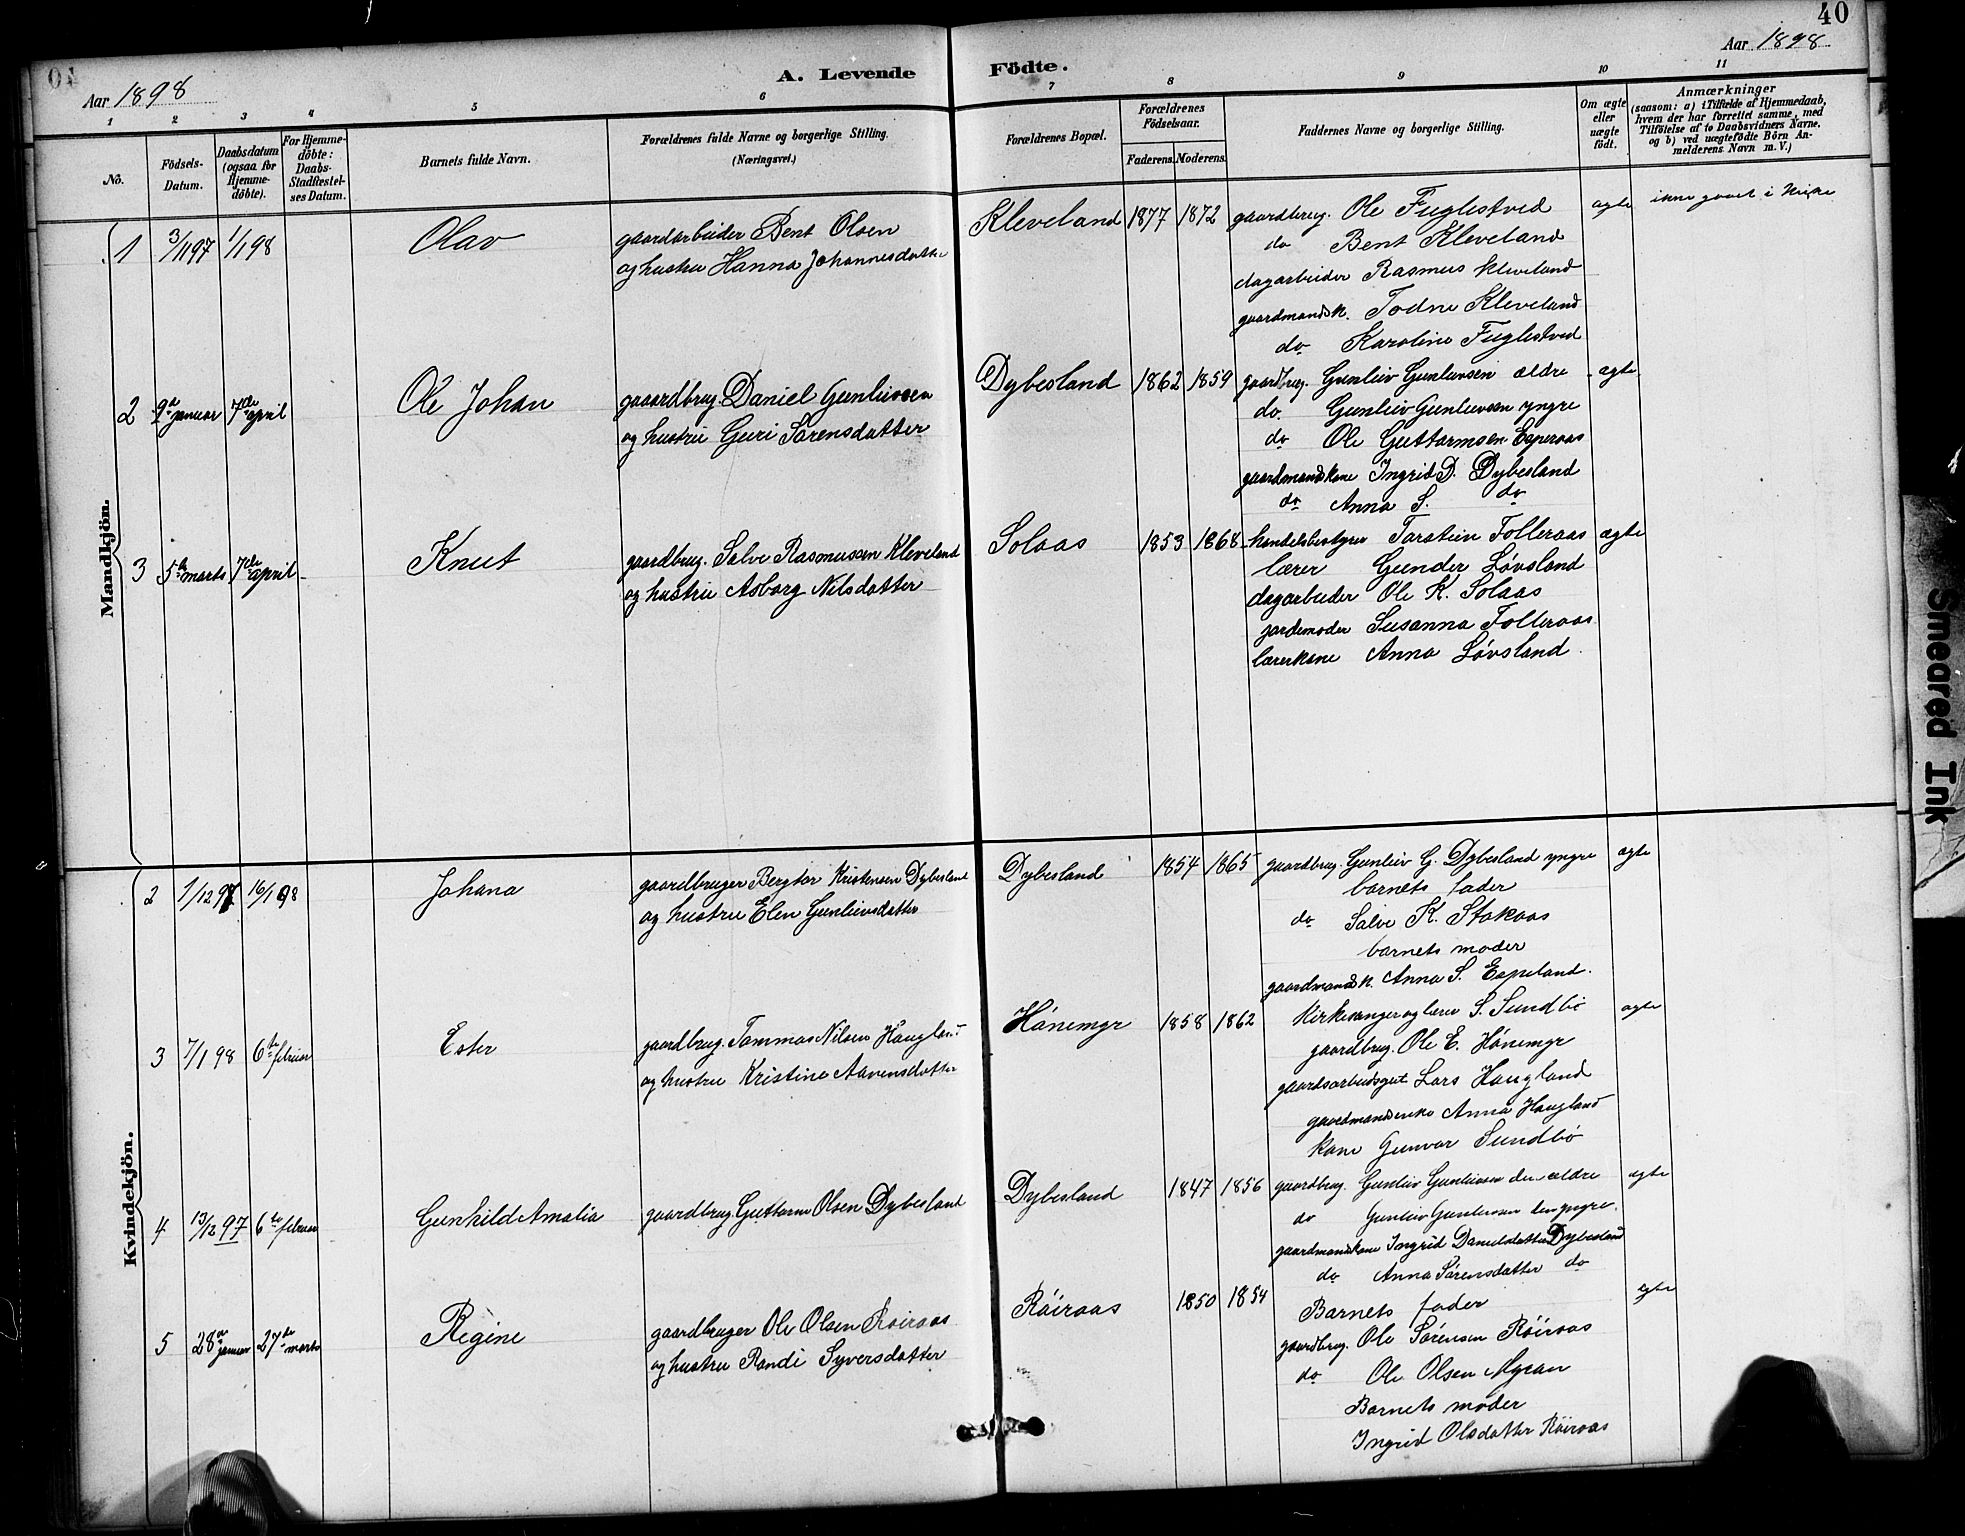 40
Aar 1898
A. Levende Födte.
Aar 1898
1 2 3 4 5 6 7 8 9 10 11
No.
Födsels-Datum.
Daabsdatum (ogsaa for Hjemme-döbte).
For Hjemme-döbte: Daabs-Stadfæstel-ses Datum.
Barnets fulde Navn.
Forældrenes fulde Navne og borgerlige Stilling.
(Næringsvei.)
Forældrenes Bopæl.
Forældrenes Födselsaar.
Faderens. Moderens.
Faddernes Navne og borgerlige Stilling.
Om ægte eller uægte födt.
Anmærkninger
(saasom: a) i Tilfælde af Hjemmedaab, hvem der har forrettet samme, med Tilföielse af to Daabsvidners Navne. og b) ved uægtefödte Börn An-melderens Navn m. V.)
Mandkjön.
1 3/11 97 1/1 98 Olav
gaardarbeider Bent Olsen
og hustru Hanna Johannesdatter
Kleveland 1877 1872
gaardbrug. Ole Fuglestved
do Bent Kleveland
dagarbeider Rasmus Kleveland
gaardmandsk. Todne Kleveland
do Karoline Fuglestved
ægte
i Kirke
2 9de januar 7de april Ole Johan
gaaardbrug. Daniel Gunleivsen
og hustru Guri Sørensdatter
Dybesland 1862 1859
gaardbrug. Gunleiv Gunleivsen ældre
do. Gunleiv Gunleivsen yngre
do Ole Guttormsen Esperaas
gaardmandskone Ingrid D. Dybesland
do Anna S. do
ægte
3 5te marts 7de april Knut
gaardbrug. Salve Rasmussen Kleveland
og hustru Asborg Nilsdatter
Solaas 1853 1868
handelsbestyrer Tarstein Folleraas
lærer Gunder Løvsland
dagarbeider Ole K. Solaas
jordemoder Susanna Folleraas
lærerkone Anna Løvsland.
ægte
Kvindekjön.
2 1/12 97 16/1 98 Johana
gaardbruger Bergtor Kristensen Dybesland
og hustru Elen Gunleivsdatter
Dybesland 1854 1865
gaardbrug. Gunleiv G. Dybesland yngre
barnets fader
do Salve K. Stakaas
barnets moder
gaardmandsk. Anna S. Espeland.
ægte
3 7/1 98 6te februar Ester
gaardbrug. Tommas Nilsen Haugland
og hustru Kristine Aavensdatter
Hønemyr 1858 1862
Kirkesanger og lærer S. Sundbø
gaardbrug. Ole E. Hønemyr
gaardsarbeidsgut Lars Haugland
gaardmandsenke Anna Haugland
Kone Gunvor Sundbø
ægte
4 13/12 97 6te februar Gunhild Amalia
gaardbrug. Guttorm Olsen Dybesland
Dybesland 1847 1856
gaardbrug. Gunleiv Gunleivsen den ældre
do Gunleiv Gunleivsen den yngre.
gaardmandskone Ingrid Danielsdatter Dybesland
do Anna Sørensdatter do
ægte
5 28de januar 27de marts Regine
gaardbruger Ole Olsen Røiraas
og hustru Randi Syversdatter
Røiraas 1850 1854
Barnets fader
gaardbrug. Ole Sørensen Røiraas
do Ole Olsen Myran
Barnets moder
Ingrid Olsdatter Røiraas
ægte
Smeared Ink